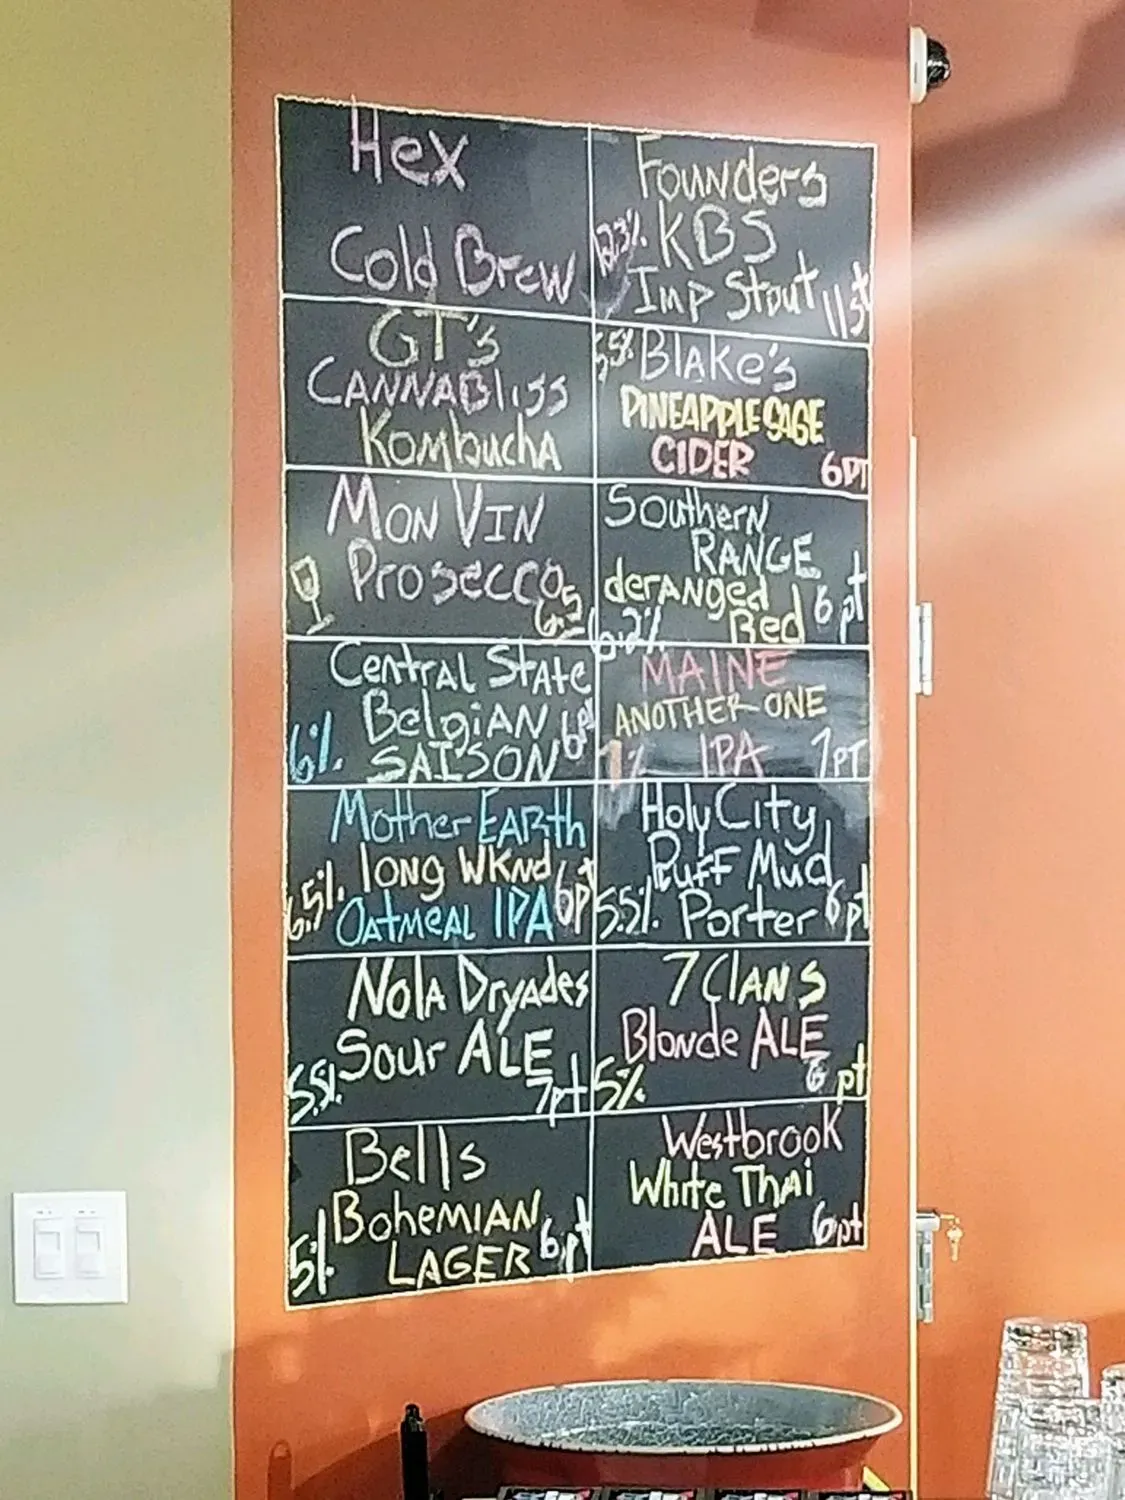 Hex
Cold Brew
GT's
CANNABliss
Kombucha
Mon Vin
Prosecco
6.5
Central State
Belgian 6pt
6% SAISON
Mother Earth
long WKnd
6.5% Oatmeal IPA 6pt
Nola Dryades
Sour ALE
5.5% 7pt
Bells
Bohemian
5% LAGER 6pt
Founders
12.3% KBS
Imp Stout 11
5.5% Blake's
PINEAPPLE SAGE
CIDER 6PT
Southern
RANGE
deranged
Red 6pt
6.2%
MAINE
ANOTHER ONE
7% IPA 7PT
Holy City
Pluff Mud
5.5% Porter 6pt
7 Clans
Blonde ALE
5% 6 pt
Westbrook
White Thai
ALE 6pt